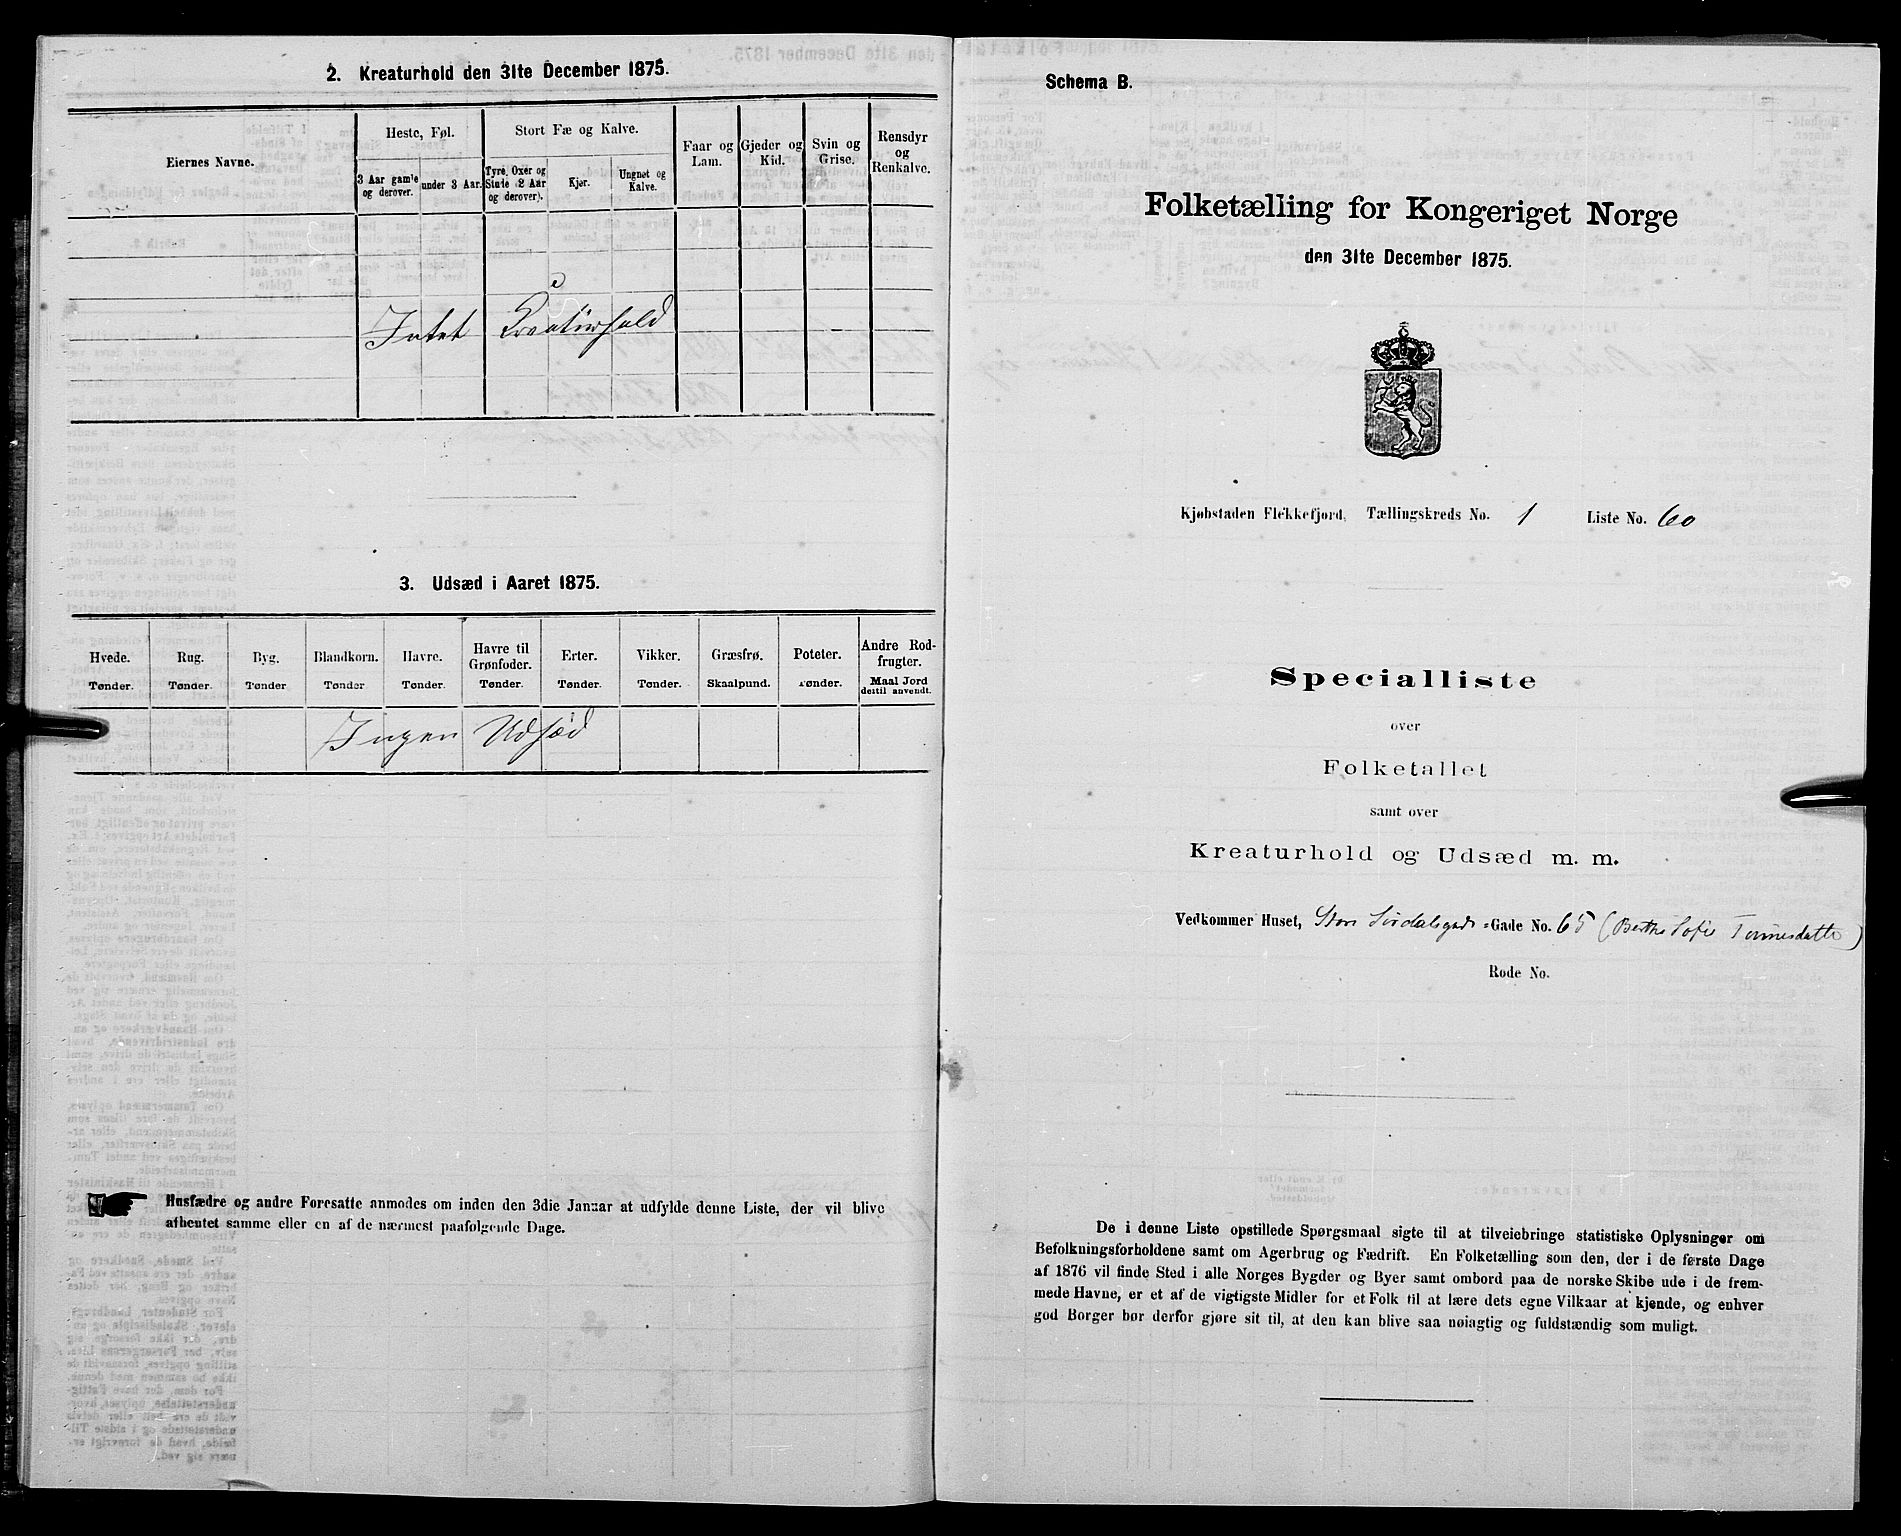 2. Kreaturhold den 31te December 1875.
Eiernes Navne.
Heste, Føl.
3 Aar gamle og derover.
under 3 Aar.
Stort Fæ og Kalve.
Tyre, Oxer og Stude (2 Aar og derover).
Kjør.
Ungnøt og Kalve.
Faar og Lam.
Gjeder og Kid.
Svin og Grise.
Rensdyr og Renkalve.
Intet Kreaturhold
3. Udsæd i Aaret 1875.
Hvede. Tønder.
Rug. Tønder.
Byg. Tønder
Blandkorn. Tønder
Havre. Tønder.
Havre til Grønfoder. Tønder.
Erter. Tønder.
Vikker. Tønder.
Græsfrø. Skaalpund.
Poteter. Tønder.
Andre Rodfrugter. Maal Jord destil anvendt.
Ingen Udsæd
Husfædre og andre Foresatte anmodes om inden den 3die Januar at udfylde denne Liste, der vil blive
afhentet samme eller en af de nærmest paafølgende Dage.
Schema B.
Folketælling for Kongeriget Norge
den 31te December 1875.
Kjøbstaden Flekkefjord, Tællingskreds No. 1 Liste No. 60
Specialliste
over
Folketallet
samt over
Kreaturhold og Udsæd m. m.
Vedkommer Huset, Store -Gade No. 65 (Berthe Sofie Tonnesdatter)
Rode No.
De i denne Liste opstillede Spørgsmaal sigte til at tilveiebringe statistiske Oplysninger om
Befolkningsforholdene samt om Agerbrug og Fædrift. En Folketælling som den, der i de første Dage
af 1876 vil finde Sted i alle Norges Bygder og Byer samt ombord paa de norske Skibe ude i de frem-
mede Havne, er et af de vigtigste Midler for et Folk til at lære dets egne Vilkaar at kjende, og enhver
god Borger bør derfor gjøre sit til, at den kan blive saa nøiagtig og fuldstændig som muligt.